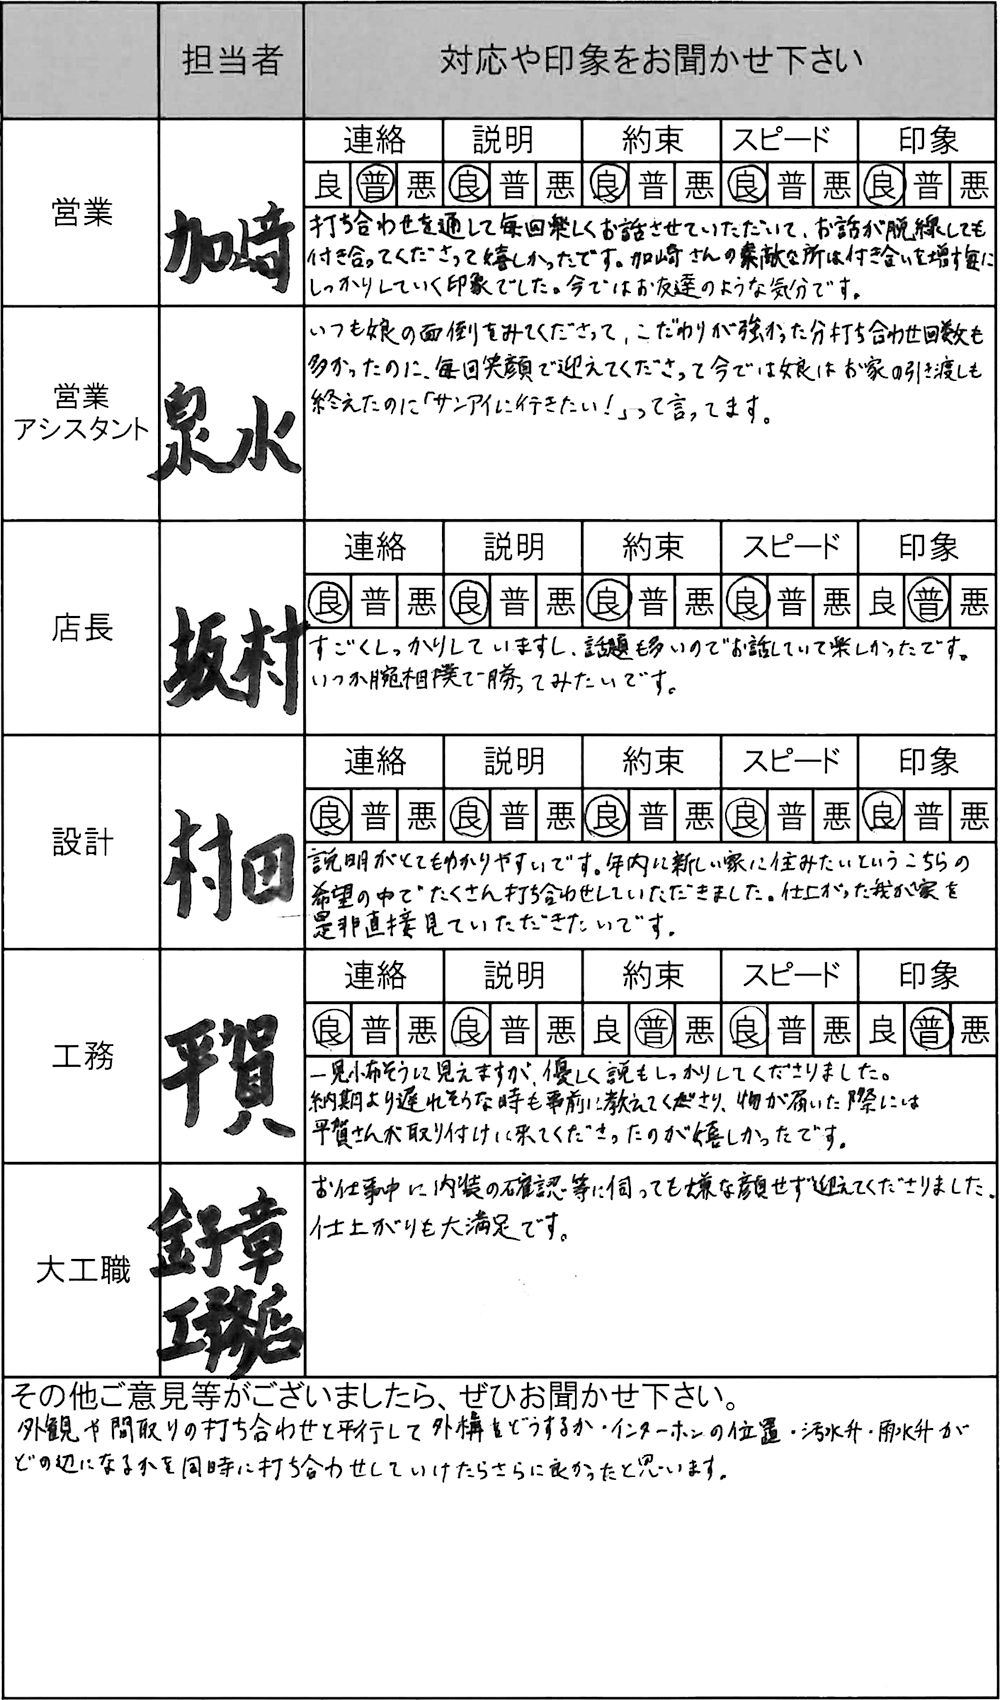 担当者 対応や印象をお聞かせ下さい
営業
加﨑
連絡 説明 約束 スピード 印象
良 普 悪 良 普 悪 良 普 悪 良 普 悪 良 普 悪
打ち合わせを通して毎回楽しくお話させていただいて、お話が脱線しても
付き合ってくださって嬉しかったです。加﨑さんの素敵な所は付き合いを増す毎に
しっかりしていく印象でした。今ではお友達のような気分です。
営業
アシスタント
泉水
いつも娘の面倒をみてくださって、こだわりが強かった分打ち合わせ回数も
多かったのに、毎回笑顔で迎えてくださって今では娘はお家の引き渡しも
終えたのに「サンアイに行きたい!」って言ってます。
店長
坂村
連絡 説明 約束 スピード 印象
良 普 悪 良 普 悪 良 普 悪 良 普 悪 良 普 悪
すごくしっかりしていますし、話題も多いのでお話していて楽しかったです。
いつか腕相撲で勝ってみたいです。
設計
村田
連絡 説明 約束 スピード 印象
良 普 悪 良 普 悪 良 普 悪 良 普 悪 良 普 悪
説明がとてもわかりやすいです。年内に新しい家に住みたいというこちらの
希望の中でたくさん打ち合わせしていただきました。仕上がった我が家を
是非直接見ていただきたいです。
工務
平賀
連絡 説明 約束 スピード 印象
良 普 悪 良 普 悪 良 普 悪 良 普 悪 良 普 悪
一見怖そうに見えますが、優しく説もしっかりしてくださりました。
納期より遅れそうな時も事前に教えてくださり、物が届いた際には
平賀さんが取り付けに来てくださったのが嬉しかったです。
大工職
金子章
工務店
お仕事中に内装の確認等に伺っても嫌な顔せず迎えてくださりました。
仕上がりも大満足です。
その他ご意見等がございましたら、ぜひお聞かせ下さい。
外観や間取りの打ち合わせと平行して外構をどうするか・インターホンの位置・汚水升・雨水升が
どの辺になるかを同時に打ち合わせしていけたらさらに良かったと思います。